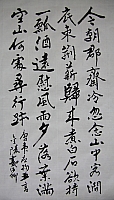 今朝郡齋冷忽念山中客澗
底束荊薪歸來煮白石欲持
一瓢酒遠慰風雨夕落葉滿
空山何處尋行跡